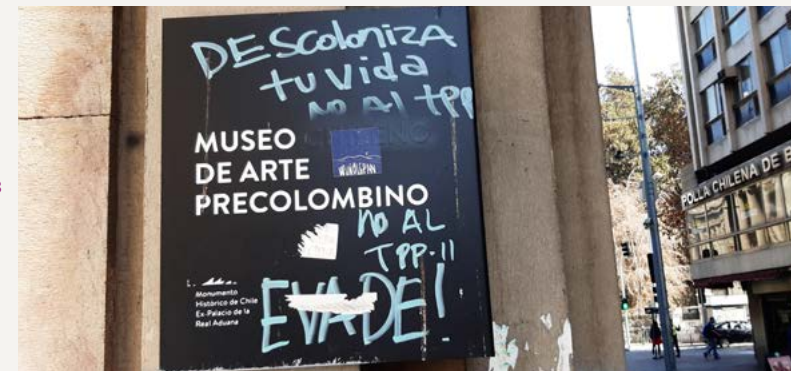 DEScoloniZA
tu vida
NO Al tPP
MUSEO
DE ARTE
PRECOLOMBINO
NO AL
TPP-11
Monumento
Histórico de Chile
Ex-Palacio de la
Real Aduana
EVADE!
POLLA CHILENA DE B